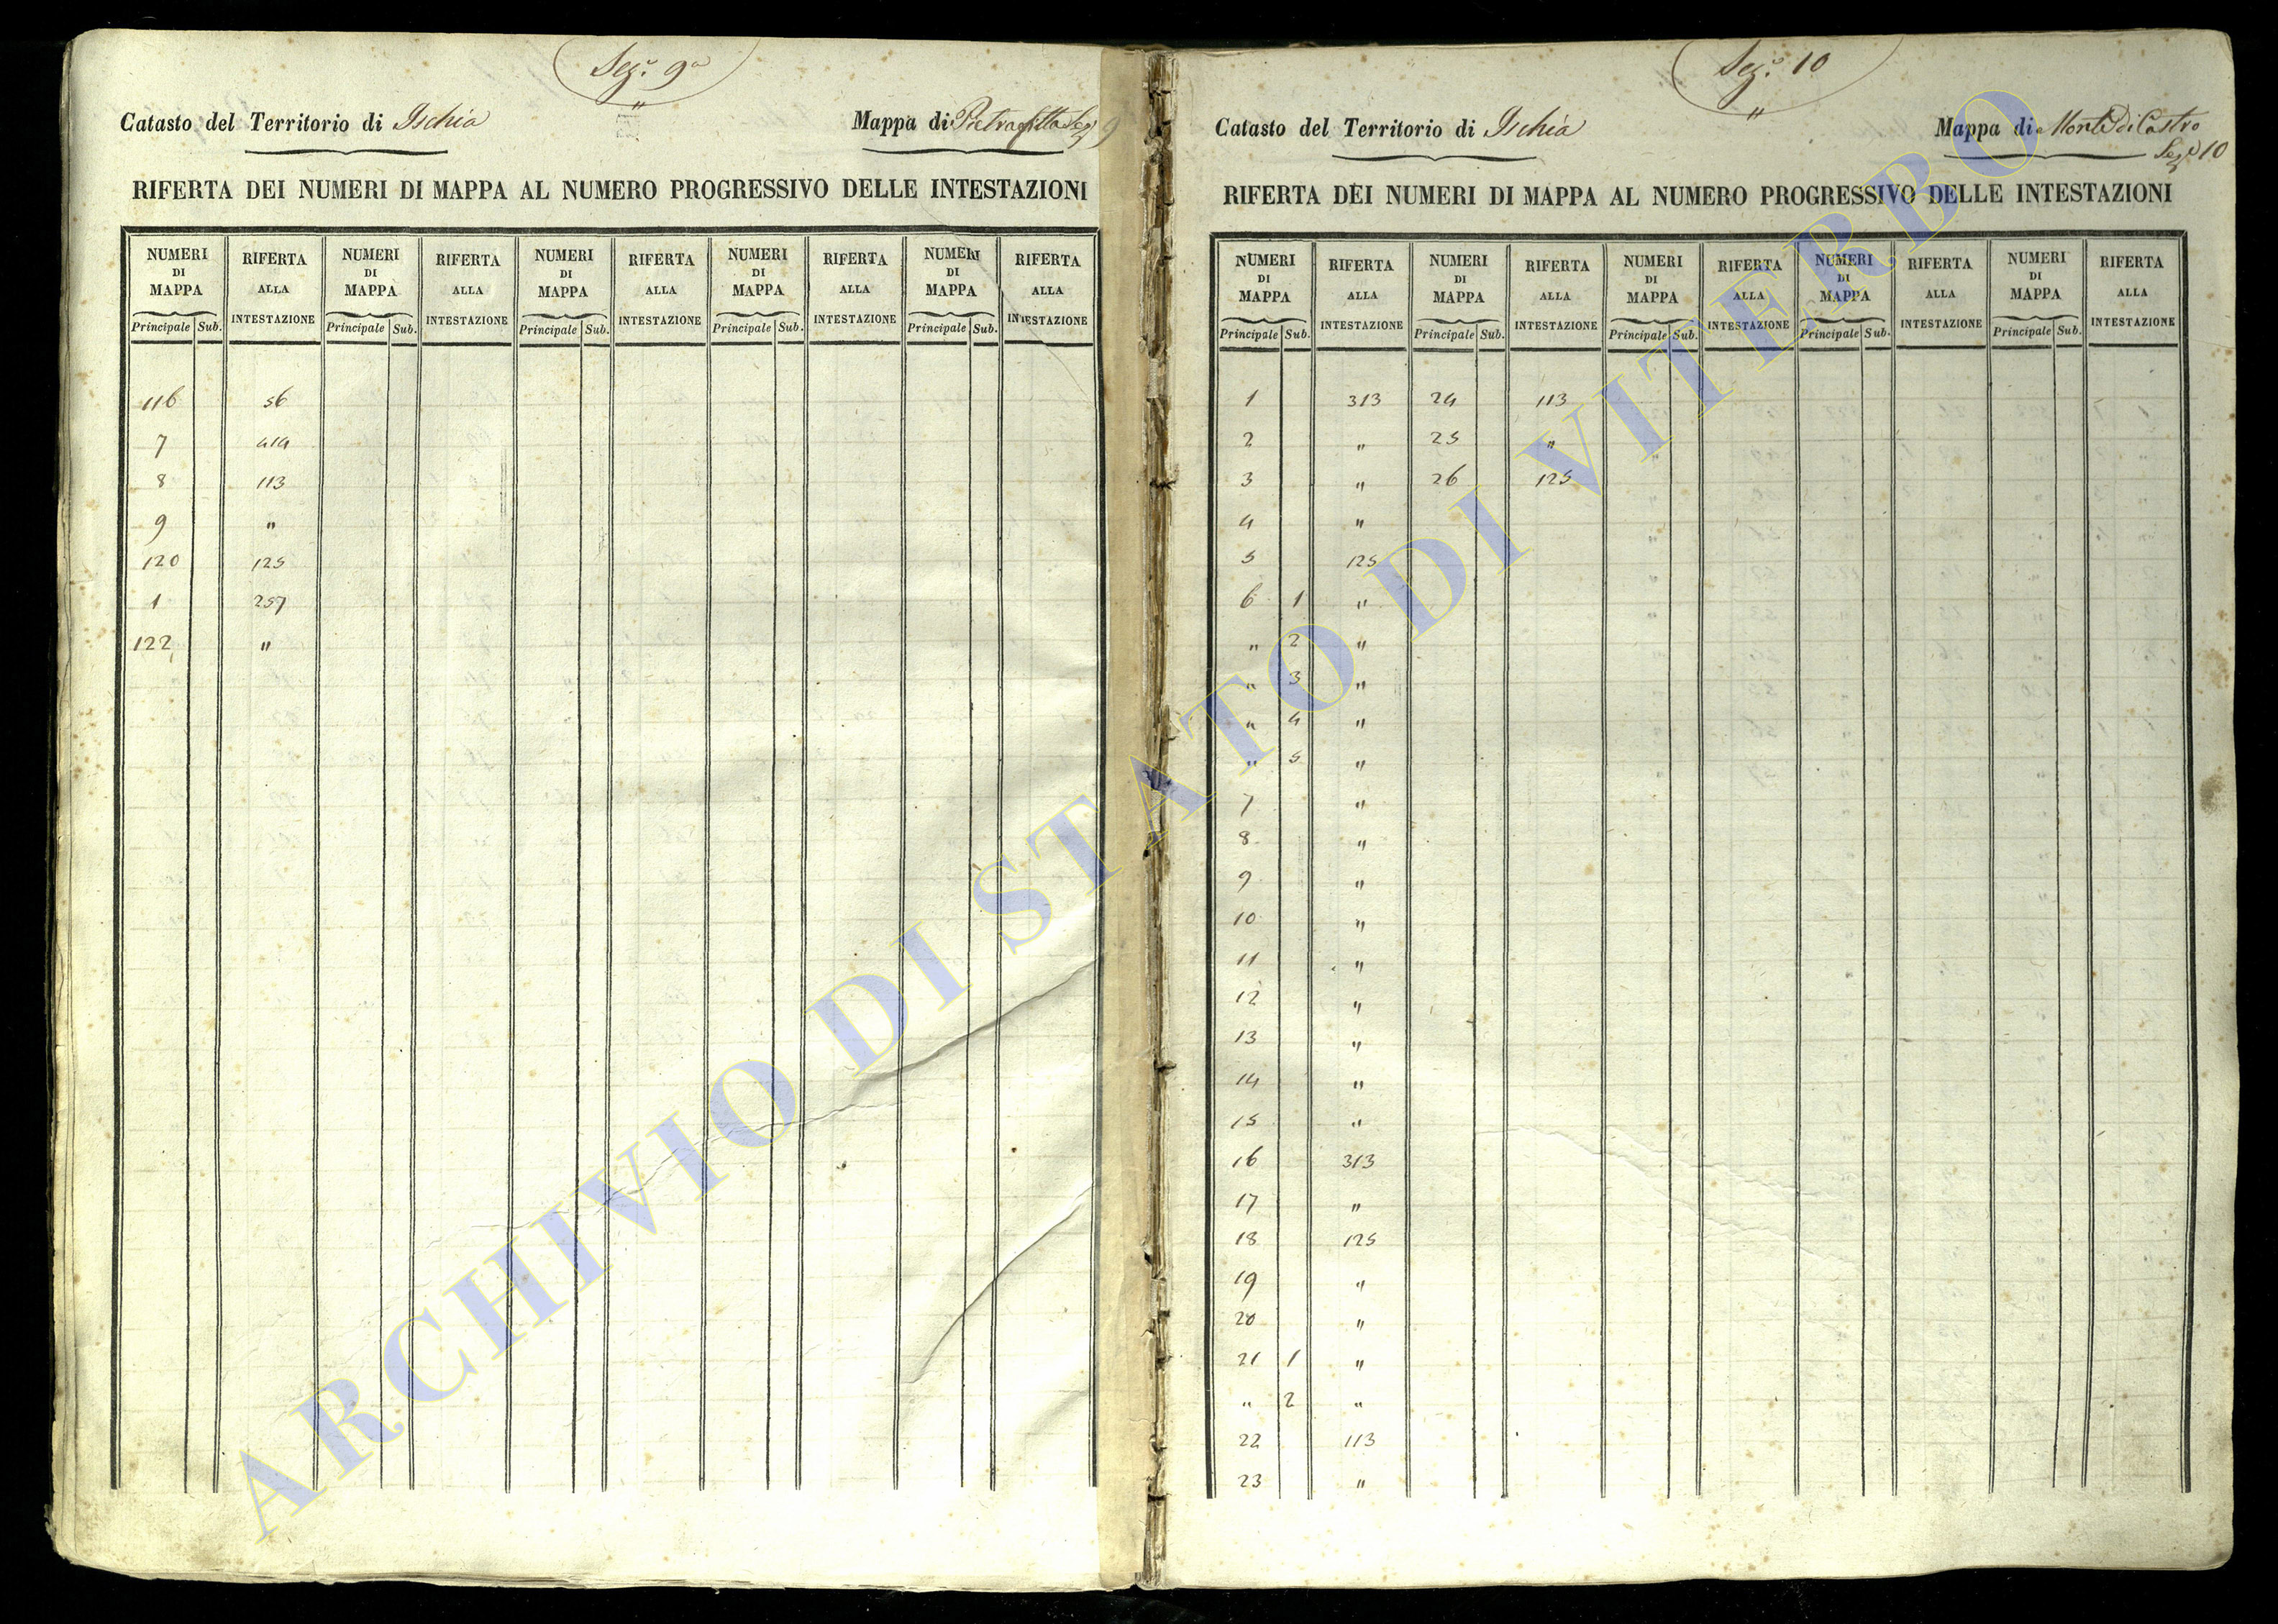 Sez.e 9a
"
Catasto del Territorio di Ischia
Mappa di Pietrafitta Sez 9
RIFERTA DEI NUMERI DI MAPPA AL NUMERO PROGRESSIVO DELLE INTESTAZIONI
NUMERI DI MAPPA RIFERTA ALLA INTESTAZIONE NUMERI DI MAPPA RIFERTA ALLA INTESTAZIONE NUMERI DI MAPPA RIFERTA ALLA INTESTAZIONE NUMERI DI MAPPA RIFERTA ALLA INTESTAZIONE NUMERI DI MAPPA RIFERTA ALLA INTESTAZIONE
Principale Sub. Principale Sub. Principale Sub. Principale Sub. Principale Sub.
116 56
7 414
8 113
9 "
120 125
1 257
122 "
Sez.e 10
"
Catasto del Territorio di Ischia
Mappa di Monte di Castro
Sez.e 10
RIFERTA DEI NUMERI DI MAPPA AL NUMERO PROGRESSIVO DELLE INTESTAZIONI
NUMERI DI MAPPA RIFERTA ALLA INTESTAZIONE NUMERI DI MAPPA RIFERTA ALLA INTESTAZIONE NUMERI DI MAPPA RIFERTA ALLA INTESTAZIONE NUMERI DI MAPPA RIFERTA ALLA INTESTAZIONE NUMERI DI MAPPA RIFERTA ALLA INTESTAZIONE
Principale Sub. Principale Sub. Principale Sub. Principale Sub. Principale Sub.
1 313 24 113
2 " 25 "
3 " 26 125
4 "
5 125
6 1 "
" 2 "
" 3 "
" 4 "
" 5 "
7 "
8 "
9 "
10 "
11 "
12 "
13 "
14 "
15 "
16 313
17 "
18 125
19 "
20 "
21 1 "
" 2 "
22 113
23 "
ARCHIVIO DI STATO DI VITERBO